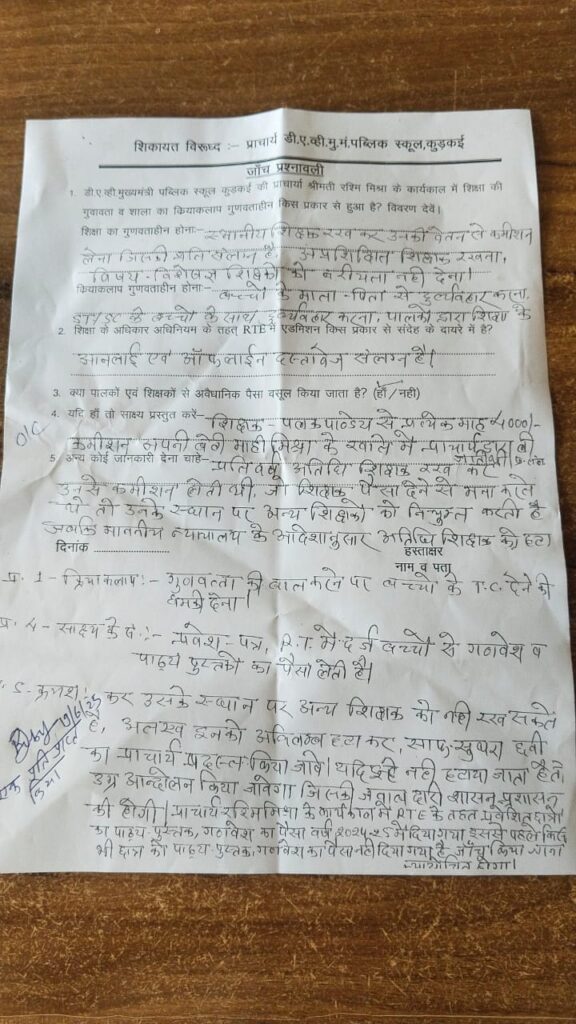 शिकायत विरूध्द :– प्राचार्य डी.ए.व्ही.मु.मं.पब्लिक स्कूल,कुड़कई
जाँच प्रश्नावली
1. डी.ए.व्ही.मुख्यमंत्री पब्लिक स्कूल कुड़कई की प्राचार्या श्रीमती रश्मि मिश्रा के कार्यकाल में शिक्षा की
गुवावता व शाला का कियाकलाप गुणवताहीन किस प्रकार से हुआ है? विवरण देवें।
शिक्षा का गुणवताहीन होना:– स्थानीय शिक्षक रख कर उनकी वेतन से कमीशन
लेना जिसकी प्रति संलग्न है। अप्रशिक्षित शिक्षक रखना,
विषय-विशेषज्ञ शिक्षकों को वरीयता नही देना।
कियाकलाप गुणवताहीन होना:– बच्चों के माता-पिता से दुर्व्यवहार करना,
ST/SC के बच्चों के साथ दुर्व्यवहार करना, पालकों द्वारा शिक्षा के
2. शिक्षा के अधिकार अधिनियम के तहत् RTE में एडमिशन किस प्रकार से संदेह के दायरे में है?
आनलाई एवं ऑफलाईन दस्तावेज संलग्न है।
3. क्या पालकों एवं शिक्षकों से अवैधानिक पैसा वसूल किया जाता है? (हाँ/नही)
4. यदि हाँ तो साक्ष्य प्रस्तुत करें– शिक्षक - पलक पाण्डेय से प्रत्येक माह 4000/-
O/C
कमीशन अपनी बेटी माही मिश्रा के खाते में प्राचार्य द्वारा ली
5. अन्य कोई जानकारी देना चाहे– प्रतिवर्ष अतिथि शिक्षक रख कर
उनसे कमीशन लेती थी, जो शिक्षक पैसा देने से मना करते
थे तो उनके स्थान पर अन्य शिक्षकों को नियुक्त करती है
जबकि माननीय न्यायालय के आदेशानुसार अतिथि शिक्षक को हटा
दिनांक
हस्ताक्षर
नाम व पता
प्र. 1 - क्रियाकलाप :- गुणवत्ता की बात करने पर बच्चों के T.C. देने की
धमकी देना।
प्र. 4 - साक्ष्य के :- प्रवेश-पत्र, R.T. में दर्ज बच्चों से गणवेश व
पाठ्य पुस्तकों का पैसा लेती है।
5 - क्रमशः : कर उसके स्थान पर अन्य शिक्षक को नही रख सकते
है, अतएव इनको अविलम्ब हटा कर, साफ सुथरा छवी
का प्राचार्य प्रदस्त किया जावें। यदि इन्हे नही हटाया जाता है तो,
उग्र आन्दोलन किया जावेगा जिसकी जवाब दारी शासन प्रशासन
की होगी। प्राचार्य रश्मि मिश्रा के कार्यकाल में RTE के तहत प्रवेशित छात्रों
का पाठ्य-पुस्तक, गणवेश का पैसा वर्ष 2024-25 में दिया गया इससे पहले किसी
भी छात्र को पाठ्य-पुस्तक, गणवेश का पैसा नही दिया गया है जाँच किया जाना
न्यायोचित होगा।
एक प्रति प्राप्त
किया